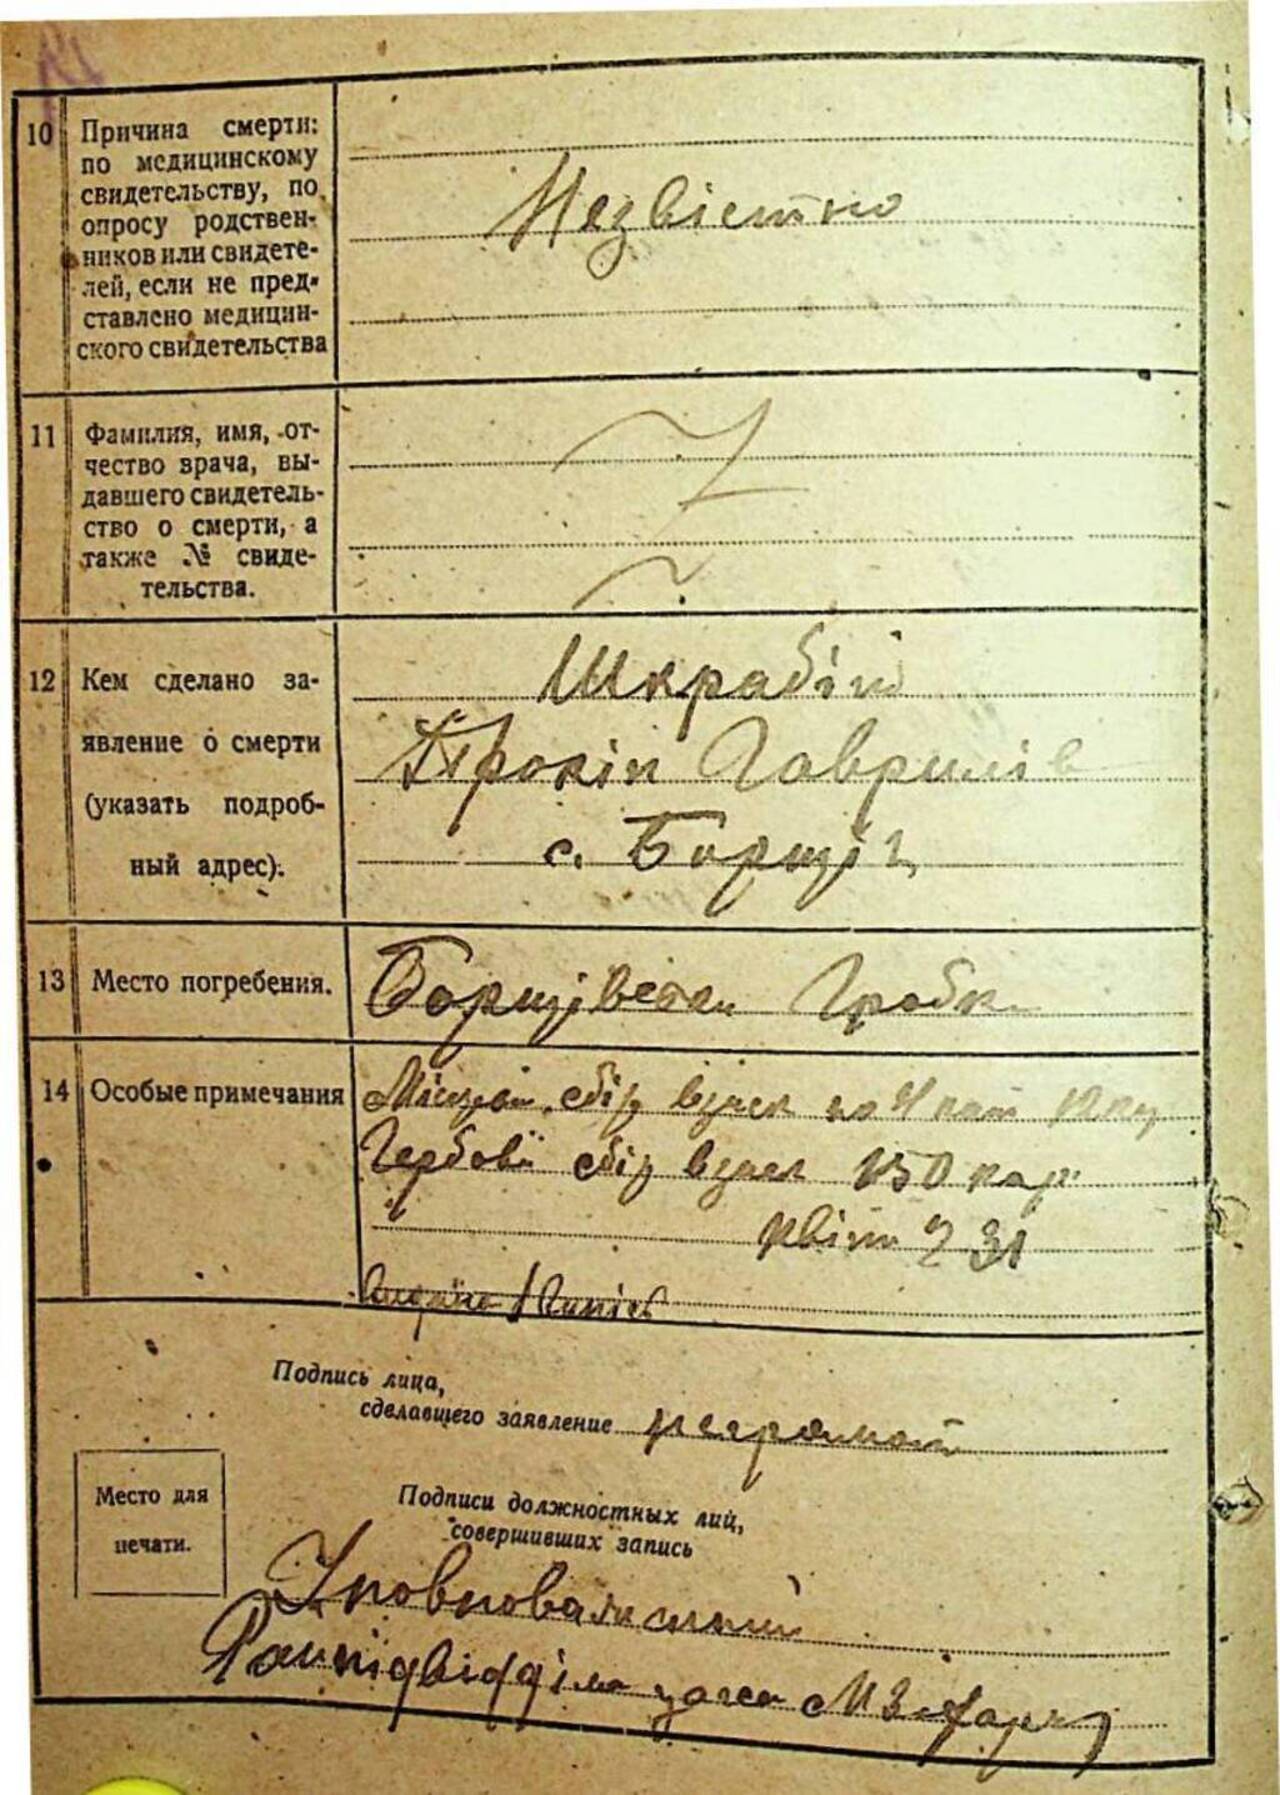 10 Причина смерти:
по медицинскому
свидетельству, по
опросу родствен-
ников или свидете-
лей, если не пред-
ставлено медицин-
ского свидетельства
Незвістно
11 Фамилия, имя, от-
чество врача, вы-
давшего свидетель-
ство о смерти, а
также № свиде-
тельства.
12 Кем сделано за-
явление о смерти
(указать подроб-
ный адрес).
Шкрабій
Прокіп Гаврилів
с. Борщів
13 Место погребения.
Борщівски Гробки
14 Особые примечания
збір
Гербовий збір 150 кар
квіт 231
Подпись лица,
сделавшего заявление неграмот
Место для
печати.
Подписи должностных лиц,
совершивших запись
Уповноважений
Райпідвідділа загса